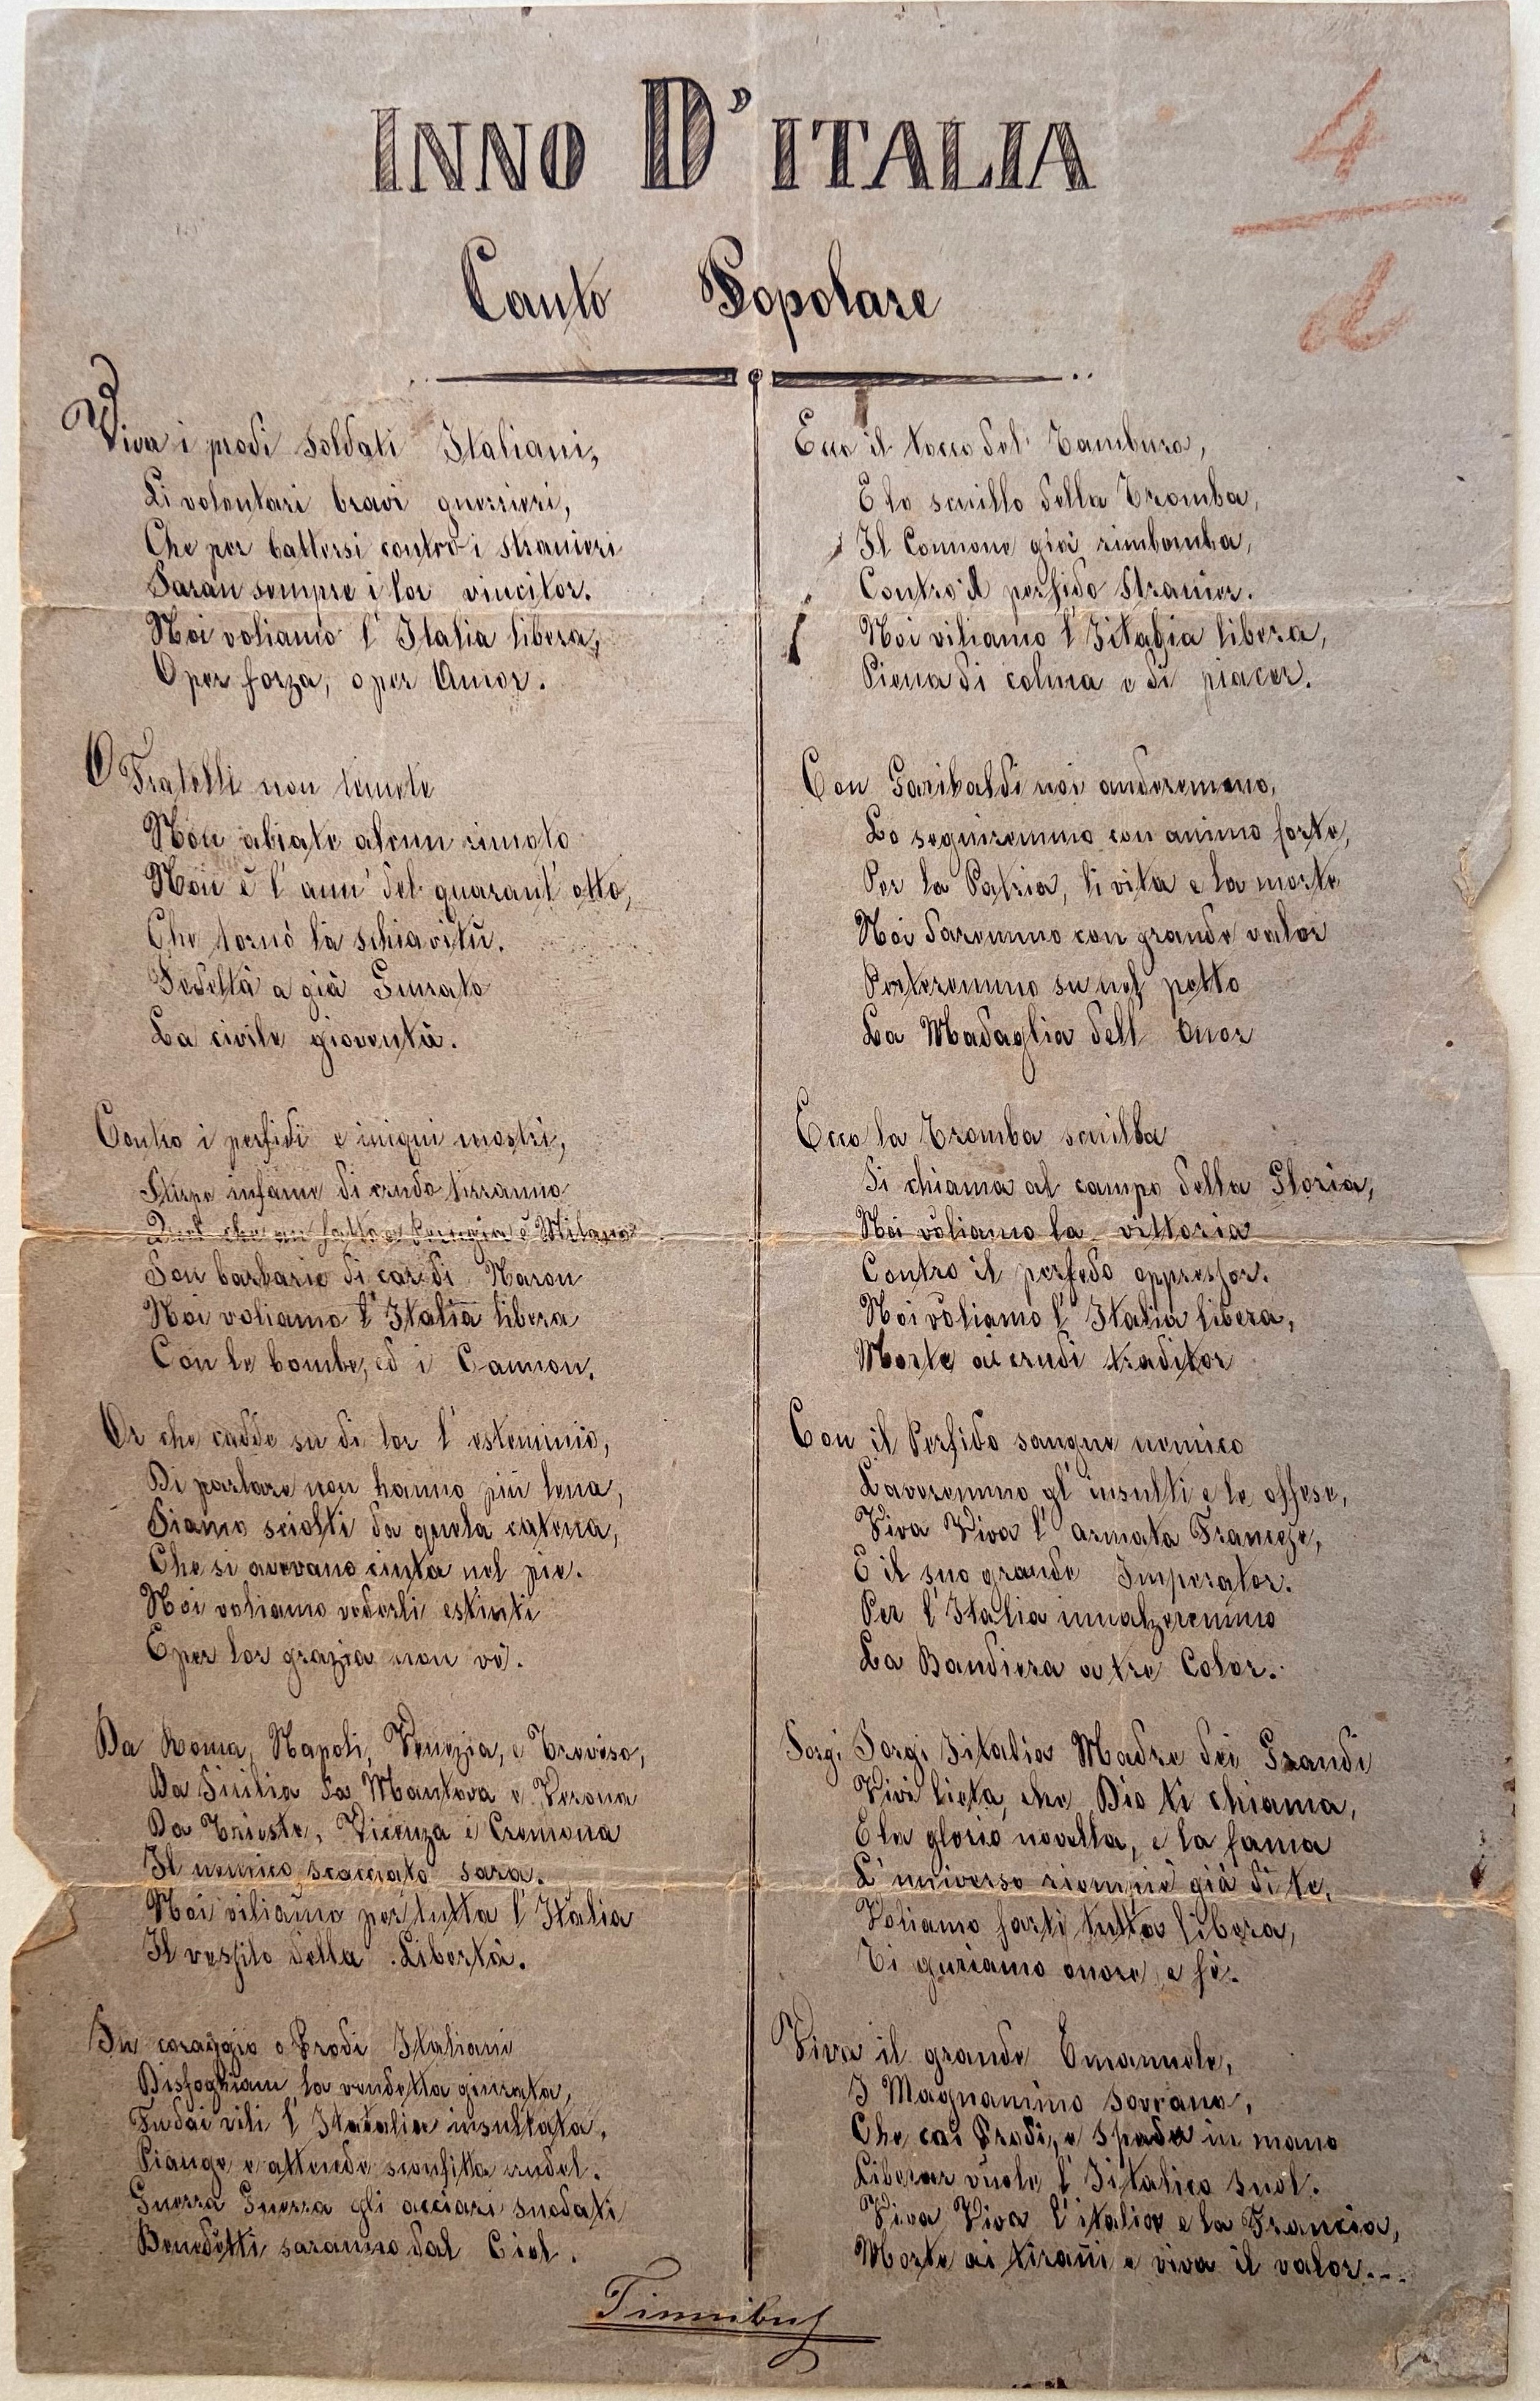 INNO D'ITALIA
4
d
Canto Popolare
Viva i prodi soldati Italiani,
Li volontari bravi guerrieri,
Che per battersi contro i stranieri
Saran sempre i lor vincitor.
Noi voliamo l' Italia libera,
O per forza, o per Amor.
O Fratelli non temete
Non abiate alcun rimoto
Non è l' ann' del quarant' otto,
Che tornò la schiavitù.
Fedeltà a già Giurato
La civile gioventù.
Contro i perfidi e iniqui mostri,
Stirpe infame di crudo tirranno
Quel che an fatto a Perugia e Milano
Son barbarie di cor di Naron
Noi voliamo l' Italia libera
Con le bombe, ed i Cannon.
Or che cadde su di lor l' esteminio,
Di parlare non hanno più lena,
Siamo sciolti da quela catena,
Che si avevano cinta nel pie.
Noi voliamo vederli estinti
E per lor grazia non vè.
Da Roma, Napoli, Venezia, e Treviso,
Da Sicilia da Mantova e Verona
Da Trieste, Vicenza e Cremona
Il nemico scacciato sara.
Noi viliamo per tutta l' Italia
Il vessilo della Libertà.
Su coraggio o Prodi Italiani
Disfoghiam la vendetta giurata,
Fu dai vili l' Itatalia insultata,
Piange e attende sconfitta crudel.
Guerra Guerra gli acciari snodati
Benedetti saranno dal Ciel.
Ecco il tocco del Tamburo,
E lo scuillo della Tromba,
Il Connone già rimbomba,
Contro il perfido Stranier.
Noi viliamo l' Iitalia libera,
Piena di colma e di piacer.
Con Garibaldi noi anderemmo,
Lo seguiremmo con animo forte,
Per la Patria, li vita e la morte
Noi daremmo con grande valor
Porteremmo su nel petto
La Madaglia dell' Onor
Ecco la Tromba scuilla
Si chiama al campo della Gloria,
Noi voliamo la vittoria
Contro il perfedo oppressor.
Noi voliamo l' Italia libera,
Morte ai crudi traditor
Con il Perfido sangue nemico
Laveremmo gl' insulti e le offese,
Viva Viva l' armata Francese,
E il suo grande Imperator.
Per l' Italia innalzeremmo
La Bandiera a tre Color.
Sorgi Sorgi Iitalia Madre dei Grandi
Vivi lieta, che Dio ti chiama,
E la glorio novella, e la fama
L' universo riempiè già di te.
Voliamo farti tutta libera,
Ti guriamo onore, e fè.
Viva il grande Emanuele,
I Magnanimo sovrano,
Che coi Prodi, e spada in mano
Liberar vuole l' Iitalico suol.
Viva Viva l' italia e la Francia,
Morte ai tirañi e viva il valor...